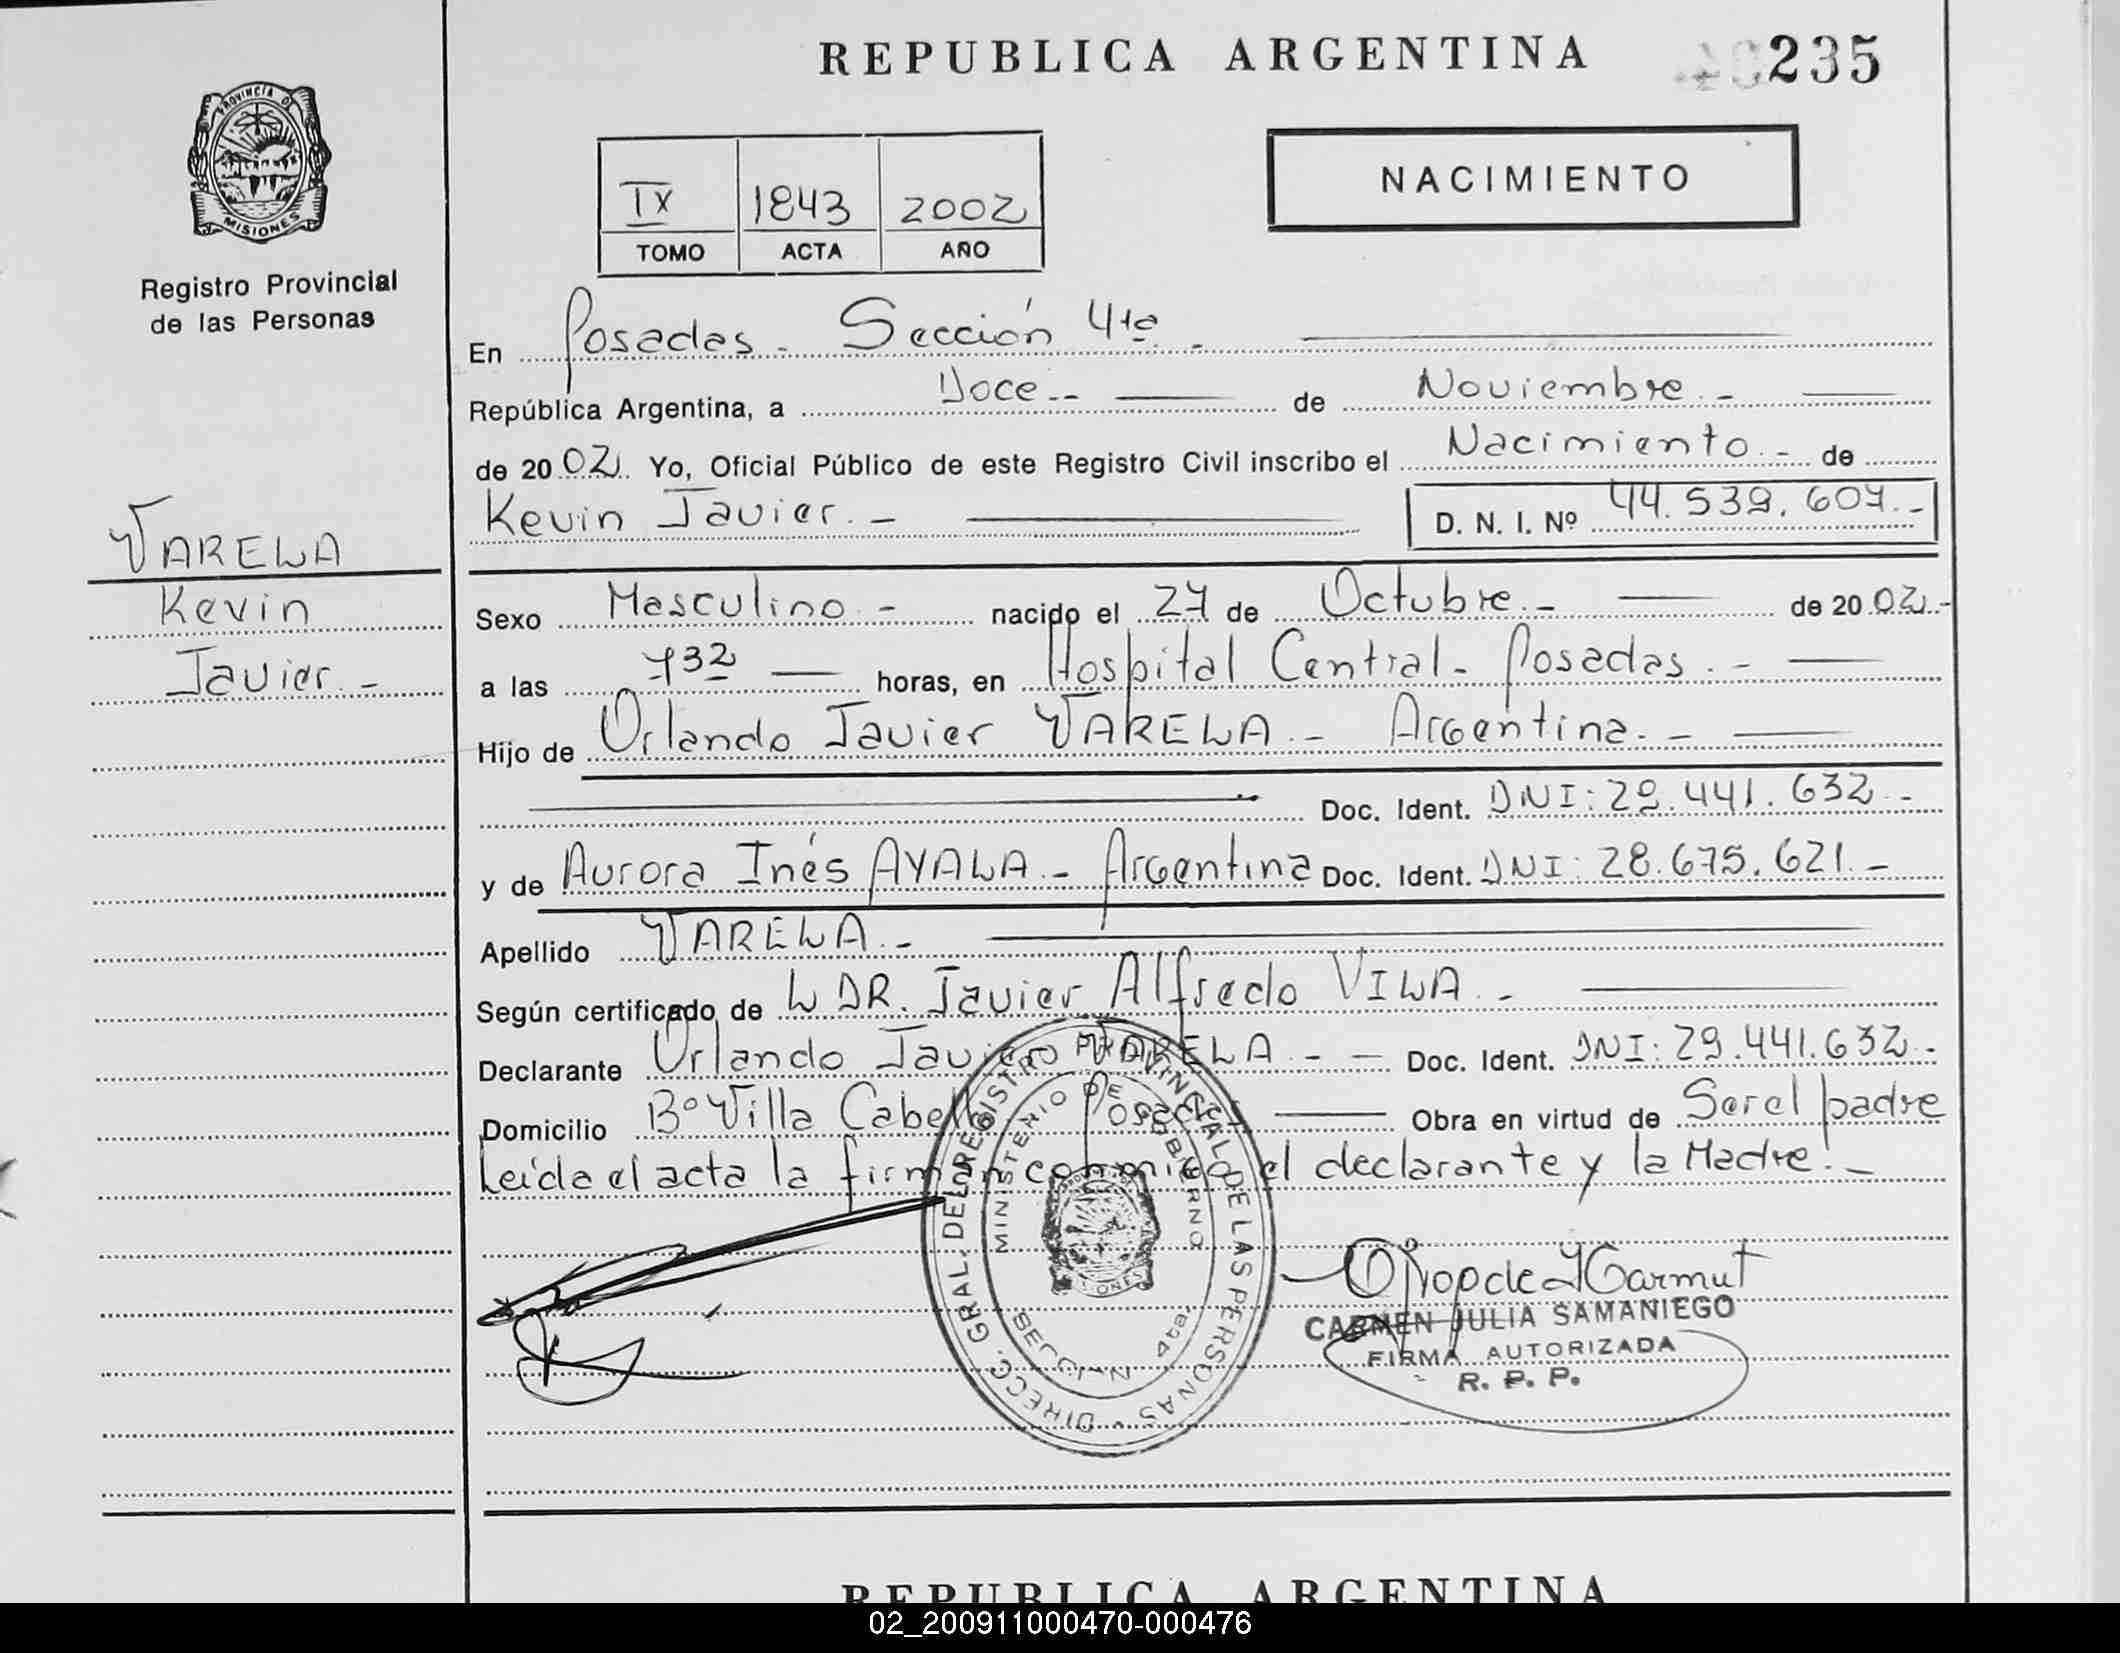 REPUBLICA ARGENTINA
235
PROVINCIA DE
MISIONES
Registro Provincial
de las Personas
IX 1843 2002
TOMO ACTA AÑO
NACIMIENTO
En Posadas - Sección 4ta. -
República Argentina, a Doce -- de Noviembre. -
de 2002. Yo, Oficial Público de este Registro Civil inscribo el Nacimiento. - de
Kevin Javier. - D. N. I. Nº 44.539.607. -
VARELA
Kevin
Javier. -
Sexo Masculino - nacido el 27 de Octubre. - de 2002. -
a las 7 32 horas, en Hospital Central - Posadas. -
Hijo de Orlando Javier VARELA. - Argentina. -
Doc. Ident. DNI: 29.441.632. -
y de Aurora Inés AYALA. - Argentina Doc. Ident. DNI: 28.675.621. -
Apellido VARELA. -
Según certificado de L DR. Javier Alfredo VILA. -
Declarante Orlando Javier VARELA. - - Doc. Ident. DNI: 29.441.632. -
Domicilio Bº Villa Cabello Obra en virtud de Ser el padre
Leída el acta la firman conmigo el declarante y la Madre. -
DIRECC. GRAL. DEL REGISTRO PROVINCIAL DE LAS PERSONAS
MINISTERIO DE GOBIERNO
SECCION 4ta.
CARMEN JULIA SAMANIEGO
FIRMA AUTORIZADA
R. P. P.
REPUBLICA ARGENTINA
02_200911000470-000476